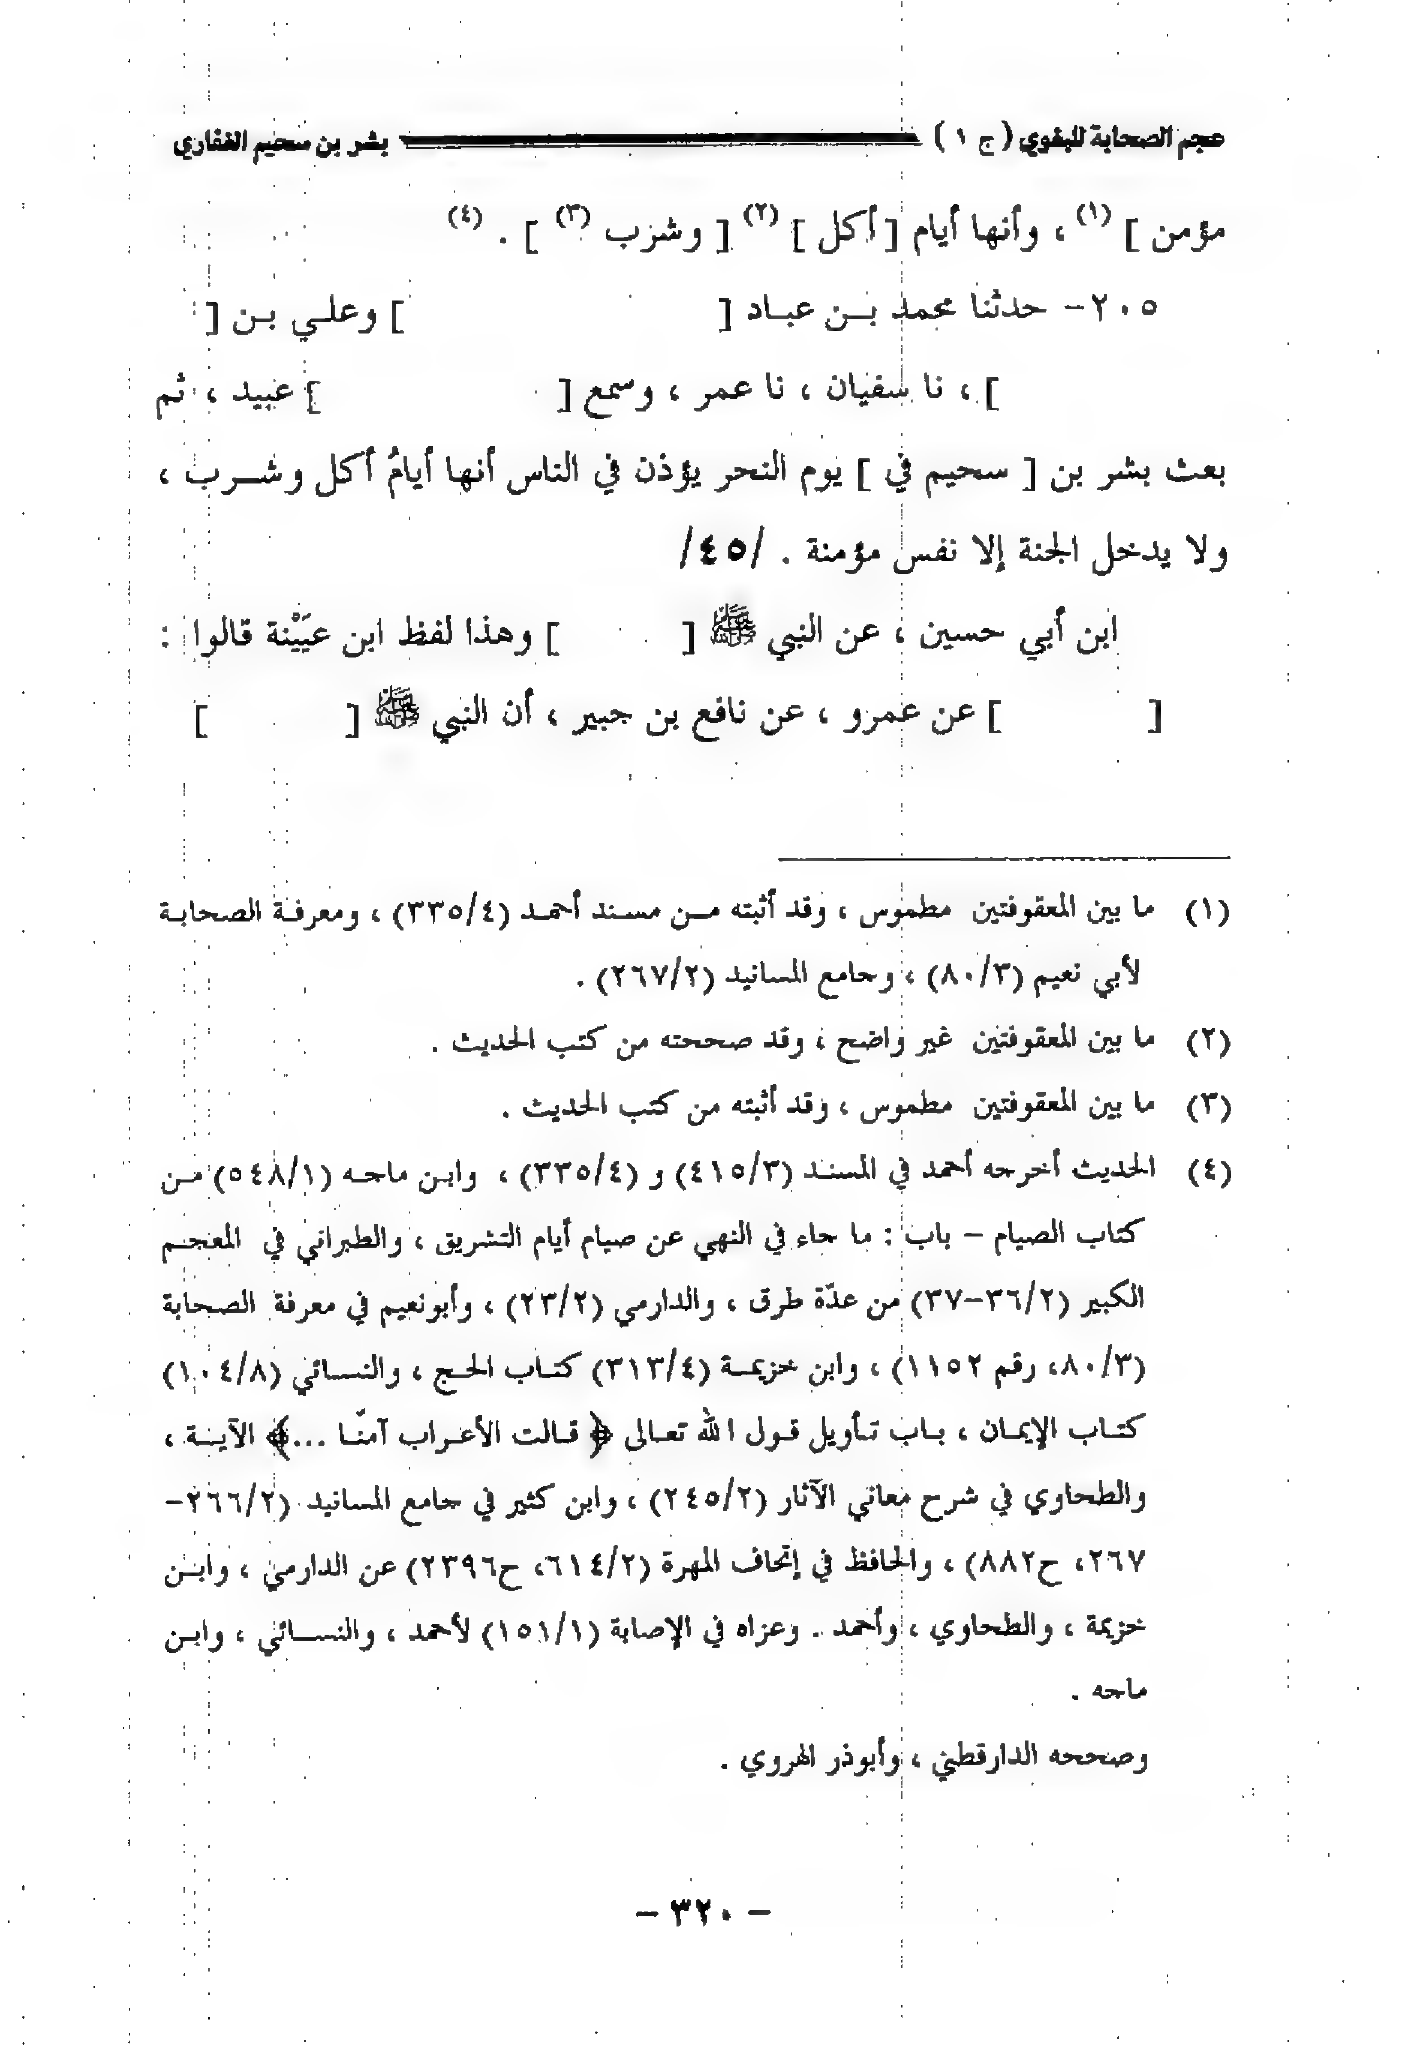 عجم الصحابة للبغوي ( ج ١ ) بشر بن سحيم الغفاري
مؤمن ] (١) ، وأنها أيام [ أكل ] (٢) [ وشرب (٣) ] . (٤)
٢٠٥- حدثنا محمد بن عباد [ ] وعلي بن [
] ، نا سفيان ، نا عمر ، وسمع [ ] عبيد ، ثم
بعث بشر بن [ سحيم في ] يوم النحر يؤذن في الناس أنها أيامُ أكل وشرب ،
ولا يدخل الجنة إلا نفس مؤمنة . /٤٥/
ابن أبي حسين ، عن النبي ﷺ [ ] وهذا لفظ ابن عيَيْنة قالوا :
[ ] عن عمرو ، عن نافع بن جبير ، أن النبي ﷺ [ ]
(١) ما بين المعقوفتين مطموس ، وقد أثبته من مسند أحمد (٣٣٥/٤) ، ومعرفة الصحابة
لأبي نعيم (٨٠/٣) ، وجامع المسانيد (٢٦٧/٢) .
(٢) ما بين المعقوفتين غير واضح ، وقد صححته من كتب الحديث .
(٣) ما بين المعقوفتين مطموس ، وقد أثبته من كتب الحديث .
(٤) الحديث أخرجه أحمد في المسند (٤١٥/٣) و (٣٣٥/٤) ، وابن ماجه (٥٤٨/١) من
كتاب الصيام – باب : ما جاء في النهي عن صيام أيام التشريق ، والطبراني في المعجم
الكبير (٣٦/٢-٣٧) من عدّة طرق ، والدارمي (٢٣/٢) ، وأبونعيم في معرفة الصحابة
(٨٠/٣، رقم ١١٥٢) ، وابن خزيمة (٣١٣/٤) كتاب الحج ، والنسائي (١٠٤/٨)
كتاب الإيمان ، باب تأويل قول الله تعالى ﴿ قالت الأعراب آمنّا ...﴾ الآية ،
والطحاوي في شرح معاني الآثار (٢٤٥/٢) ، وابن كثير في جامع المسانيد (٢٦٦/٢-
٢٦٧، ح٨٨٢) ، والحافظ في إتحاف المهرة (٦١٤/٢، ح٢٣٩٦) عن الدارمي ، وابن
خزيمة ، والطحاوي ، وأحمد . وعزاه في الإصابة (١٥١/١) لأحمد ، والنسائي ، وابن
ماجه .
وصححه الدارقطني ، وأبوذر الهروي .
- ٣٢٠ -